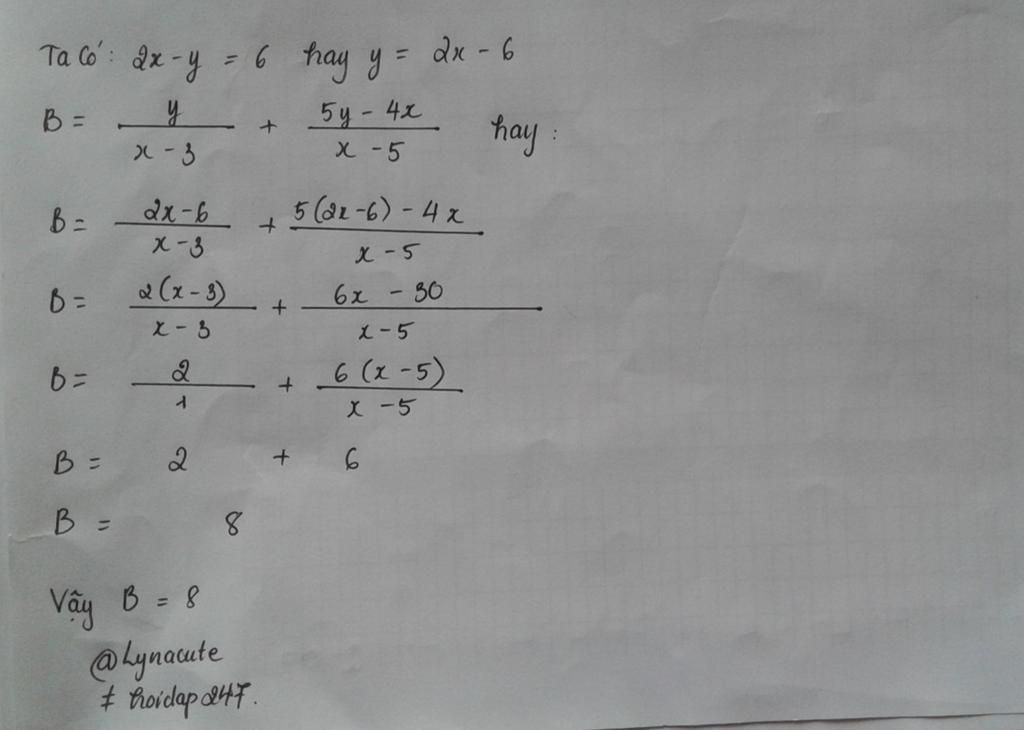 Ta có: 2x - y = 6 hay y = 2x - 6
B = y/(x - 3) + (5y - 4x)/(x - 5) hay :
B = (2x - 6)/(x - 3) + (5(2x - 6) - 4x)/(x - 5)
B = (2(x - 3))/(x - 3) + (6x - 30)/(x - 5)
B = 2/1 + (6(x - 5))/(x - 5)
B = 2 + 6
B = 8
Vậy B = 8
@Lynacute
# hoidap247.